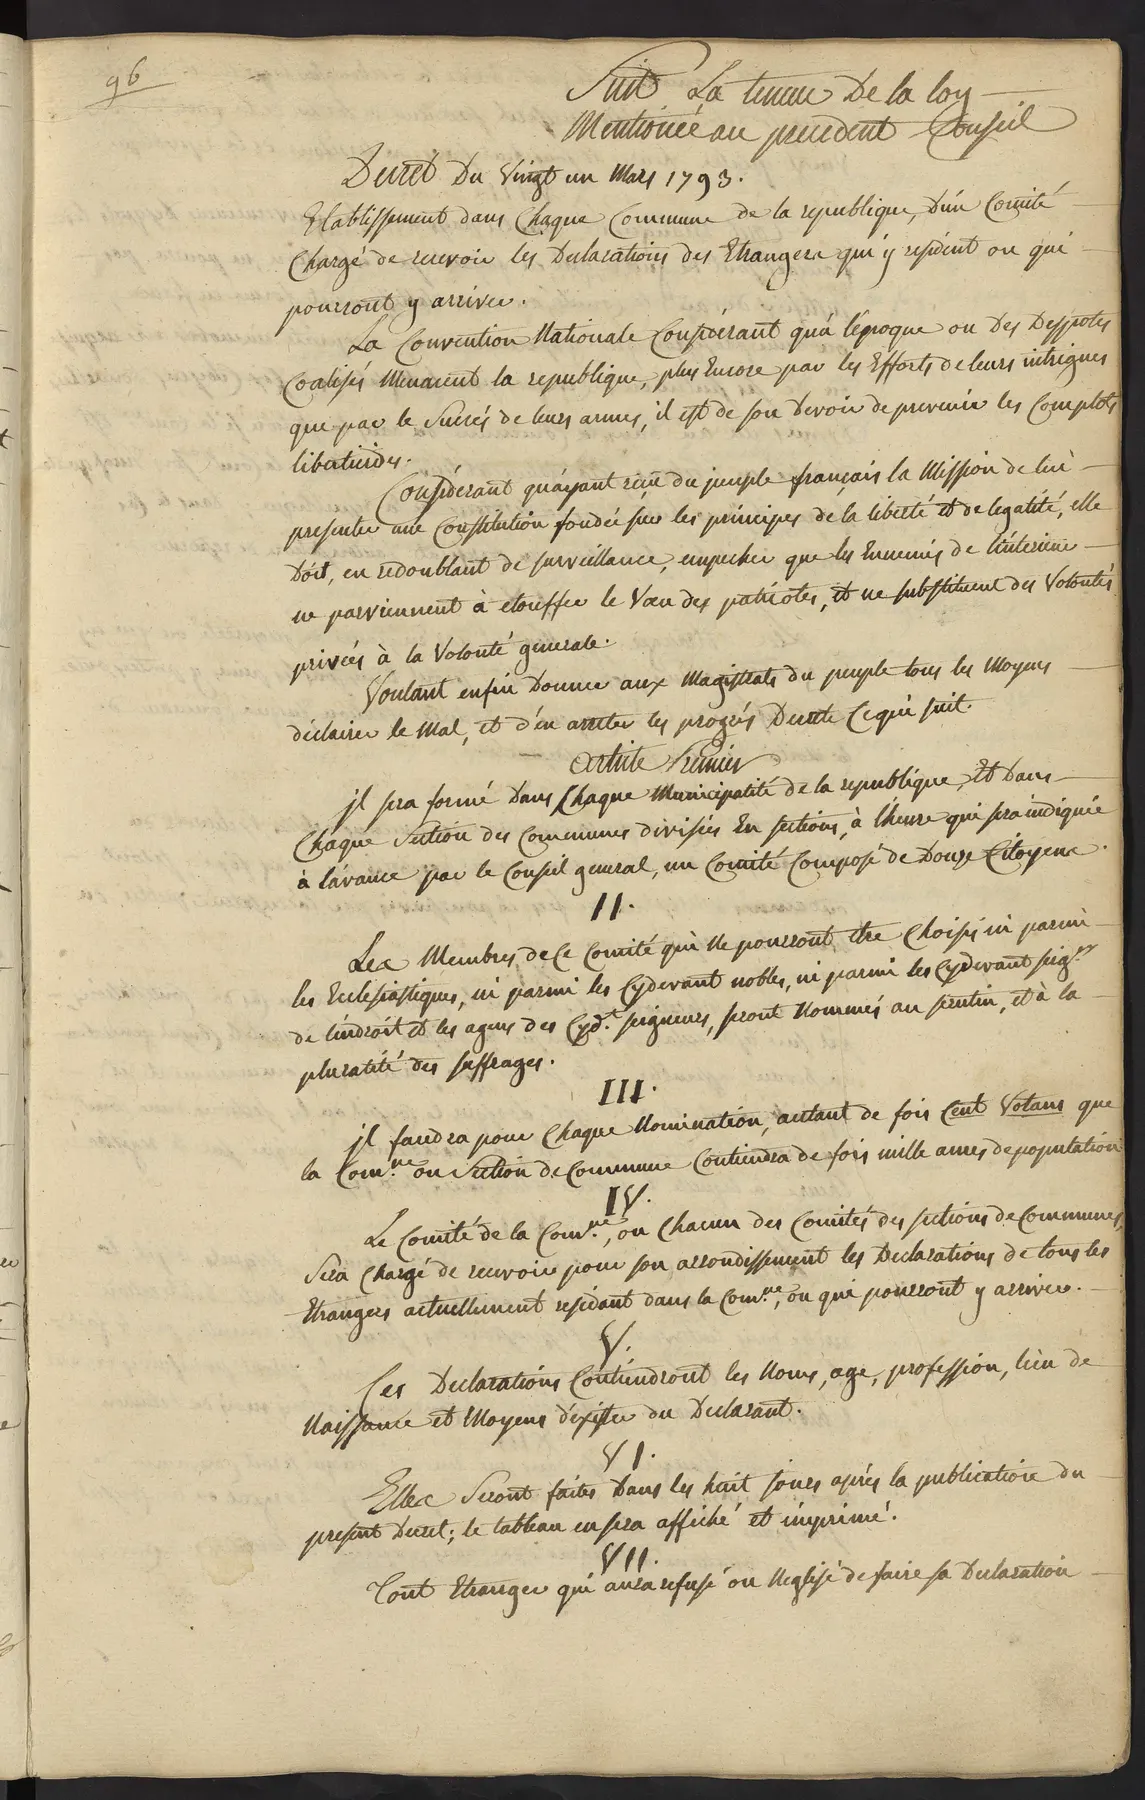 96
Suit La teneur De la loy
Mentionée au precedent Conseil
Decret Du Vingt un Mars 1793.
Etablissement dans Chaque Commune de la republique, D'un Comité
Chargé de recevoir les Declarations des Etrangers qui y resident ou qui
pourront y arriver.
La Convention Nationale Considerant qu'à l'époque ou Des Despotes
Coalisés Menacent la republique, plus Encore par les Efforts de leurs intrigues
que par le Succés de leurs armes, il est de son Devoir de prevenir les Complots
liberticides.
Considerant qu'ayant reçu du peuple français la Mission de lui
presenter une Constitution fondée sur les principes de la liberté et de legatité, elle
Doit, en redoublant de surveillance, empecher que les Ennemis de l'interieur
ne parviennent à etouffer le Vœu des patriotes, et ne substituent des Volontés
privées à la Volonté generale.
Voulant enfin Donner aux Magistrats du peuple tous les Moyens
d'éclairer le Mal, et d'en arreter les progrés Decrete Ce qui suit.
Article Premier
jl sera formé Dans Chaque Municipalité de la republique, Et Dans
Chaque Section des Communes divisées En sections, à l'heure qui sera indiquée
à l'avance par le Conseil general, un Comité Composé de Douze Citoyens.
II.
Les Membres de Ce Comité qui Ne pourront être Choisis ni parmi
les Eclesiastiques, ni parmi les Cydevant nobles, ni parmi les Cydevant seigrs
de l'endroit et les agens des Cydt seigneurs, seront Nommés au scrutin, et à la
pluralité des suffrages.
III.
jl faudra pour Chaque Nomination, autant de fois Cent Votans que
la Comne ou Section de Commune Contiendra de fois mille ames de population
IV.
Le Comité de la Comne, ou Chacun des Comités des sections de Communes,
Sera Chargé de recevoir pour son arrondissement les Declarations de tous les
Etrangers actuellement residant dans la Comne, ou qui pourront y arriver.
V.
Ces Declarations Contiendront les Noms, age, profession, lieu de
Naissance et Moyens d'exister du Declarant.
VI.
Elles Seront faites Dans les huit jours après la publication du
present Decret; le tableau en sera affiché et imprimé.
VII.
Tout Etranger qui aura refusé ou Negligé de faire sa Declaration